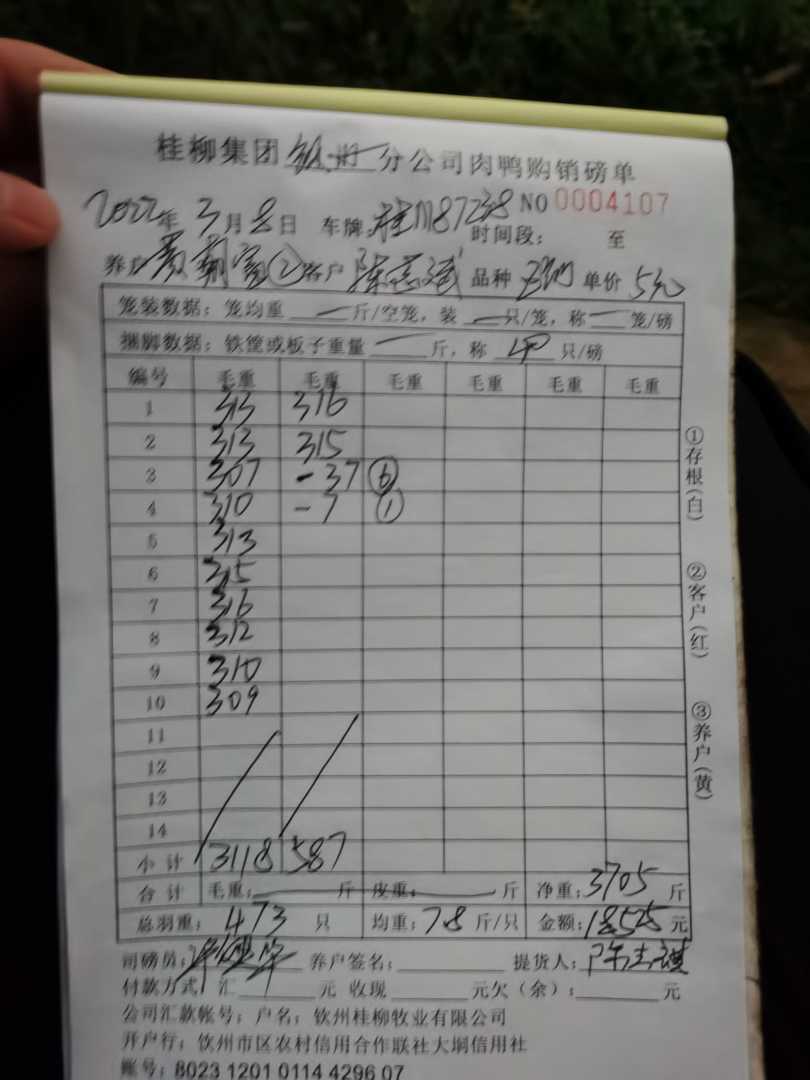 桂柳集团钦州分公司肉鸭购销磅单
2022年3月8日 车牌:桂N87238 NO 0004107
时间段: 至
养户 ② 客户 陈志斌 品种 单价 5元
笼装数据:笼均重 — 斤/空笼,装 — 只/笼,称 — 笼/磅
捆脚数据:铁筐或板子重量 — 斤,称 只/磅
编号 毛重 毛重 毛重 毛重 毛重 毛重
1 313 316
2 313 315
3 307 -37 ⑥
4 310 -7 ①
5 313
6 315
7 316
8 312
9 310
10 309
11
12
13
14
小计 3118 587
合计 毛重: 斤 皮重: 斤 净重:3705 斤
总羽重:473 只 均重:7.8 斤/只 金额:18525 元
司磅员: 养户签名: 提货人:
付款方式 汇 元 收现 元欠(余): 元
公司汇款帐号:户名:钦州桂柳牧业有限公司
开户行:钦州市区农村信用合作联社大垌信用社
账号:8023 1201 0114 4296 07
①存根(白)
②客户(红)
③养户(黄)